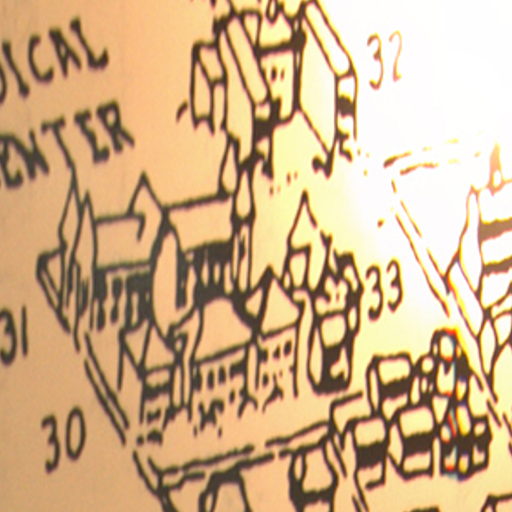 DICAL
ENTER
32
33
31
30